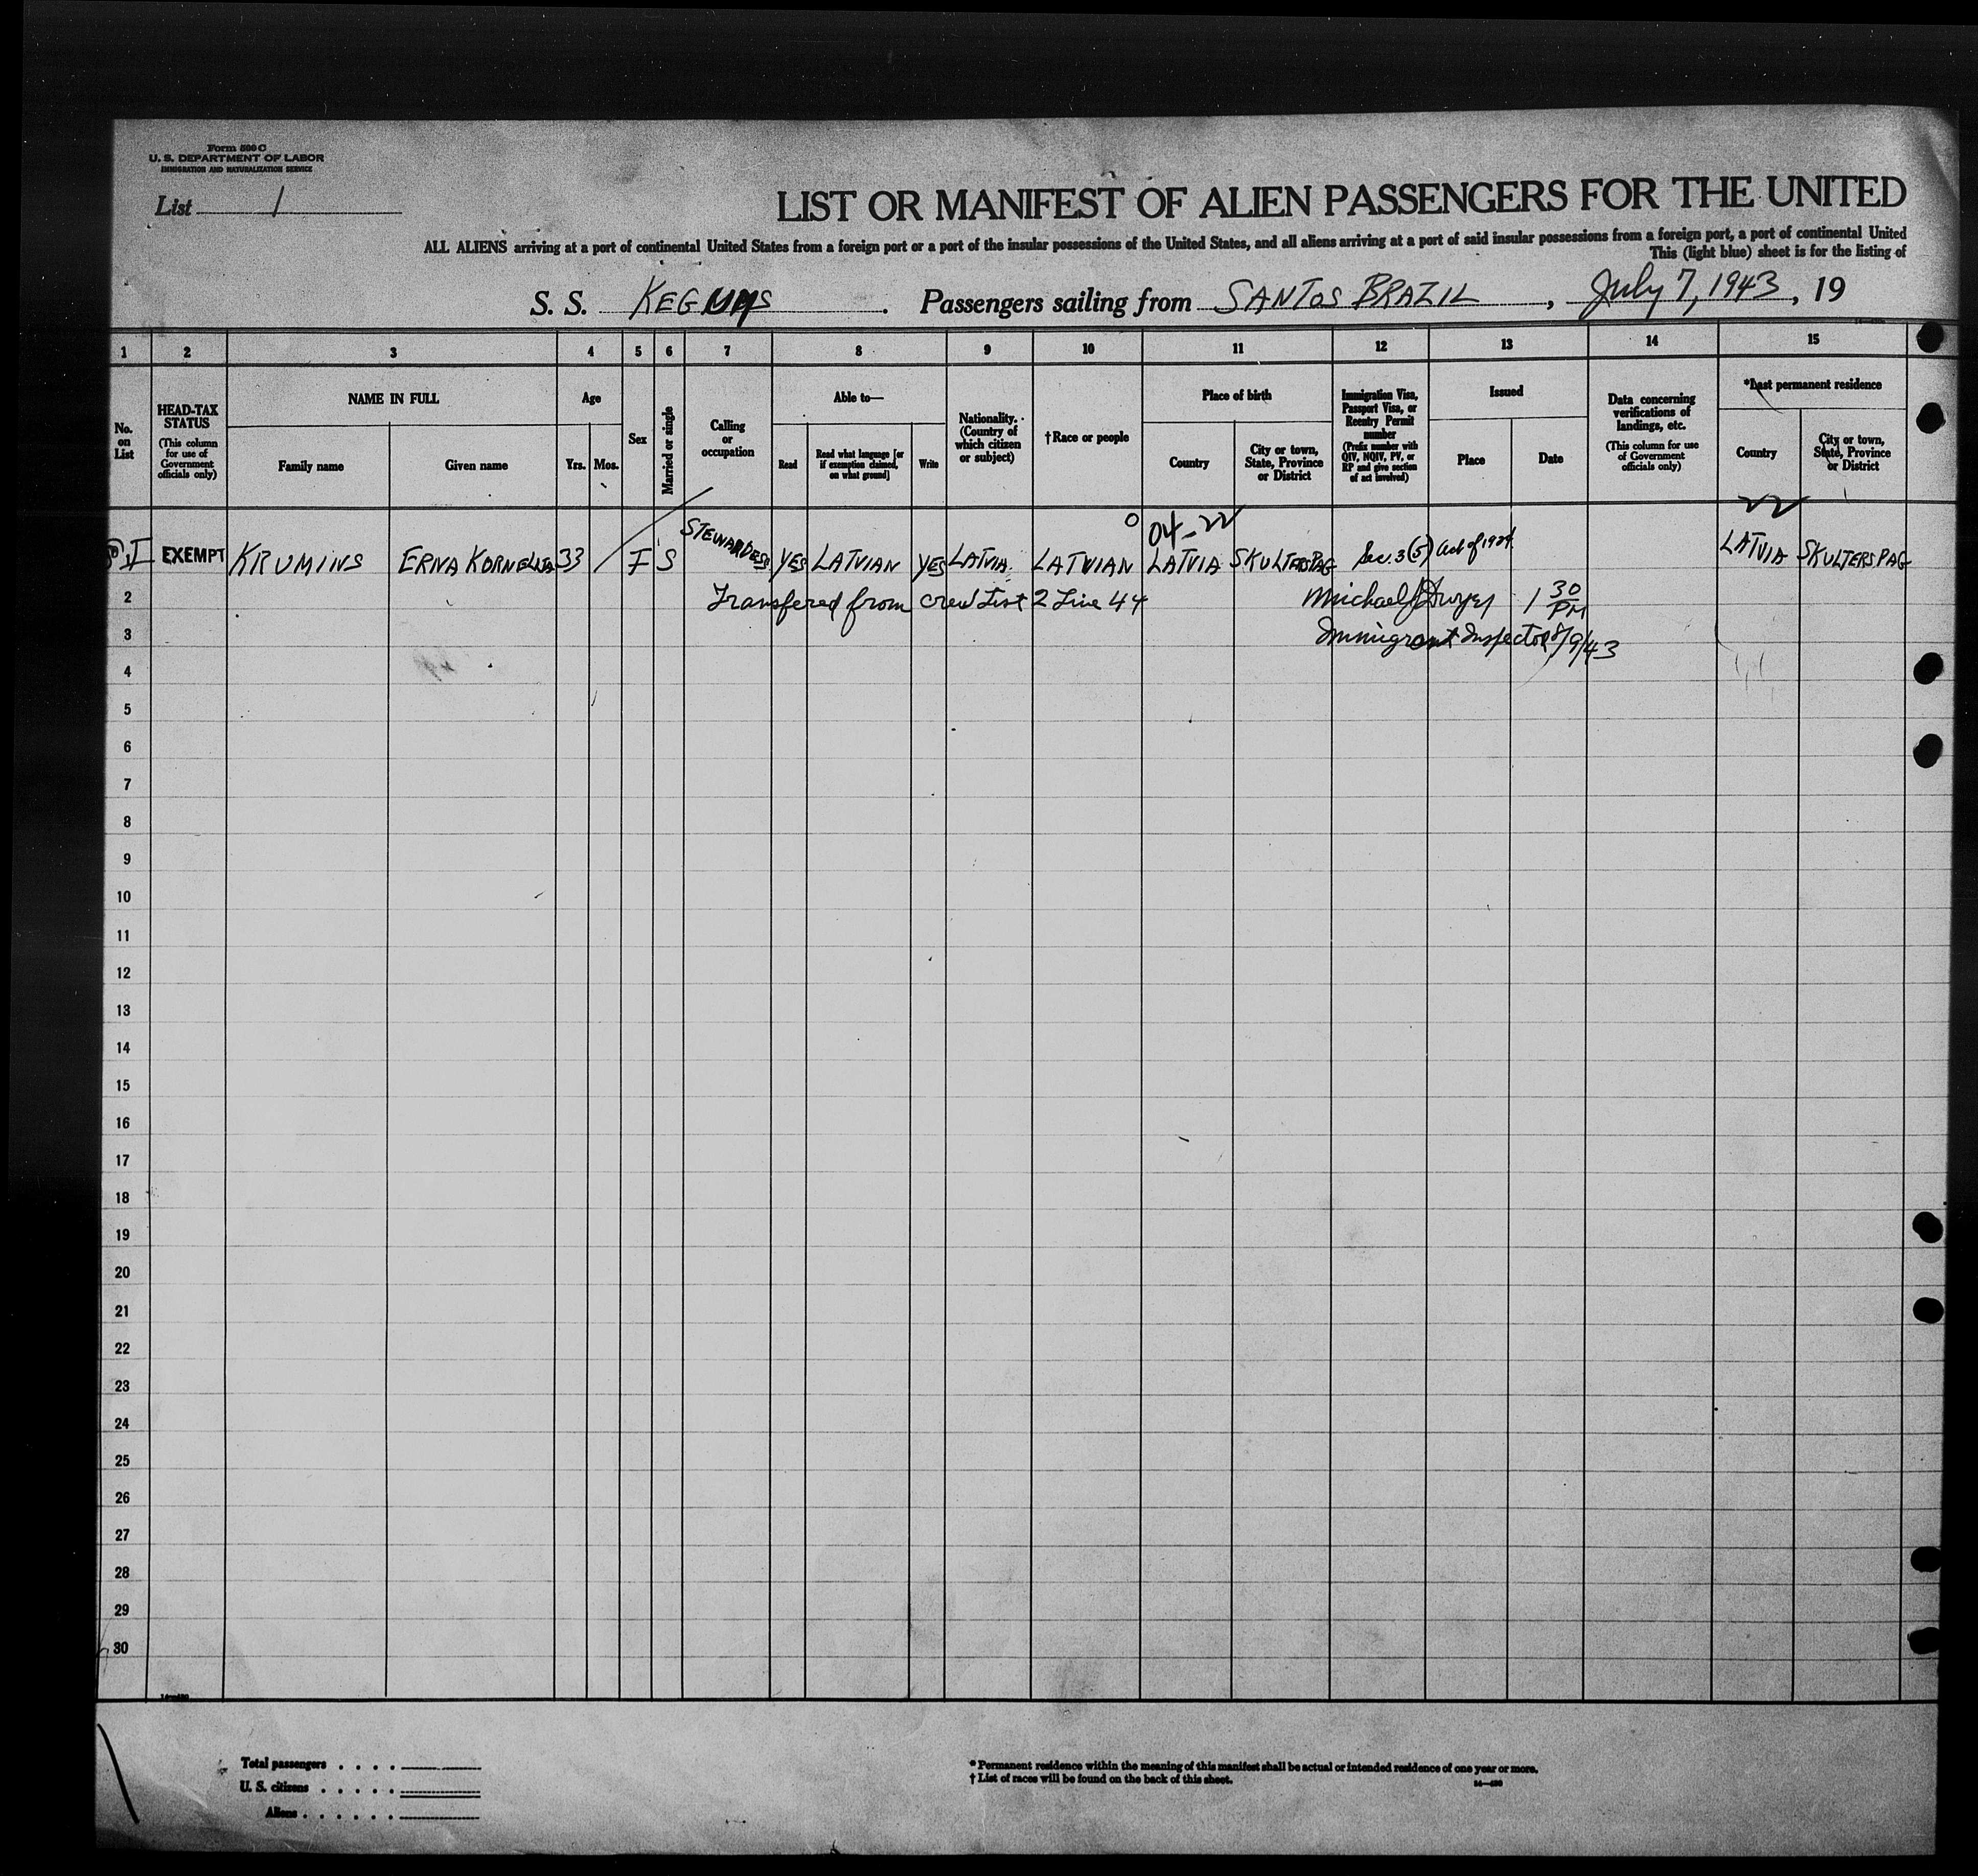 Form 500 C
U. S. DEPARTMENT OF LABOR
IMMIGRATION AND NATURALIZATION SERVICE
List 1
LIST OR MANIFEST OF ALIEN PASSENGERS FOR THE UNITED
ALL ALIENS arriving at a port of continental United States from a foreign port or a port of the insular possessions of the United States, and all aliens arriving at a port of said insular possessions from a foreign port, a port of continental United
This (light blue) sheet is for the listing of
S. S. KEGUMS. Passengers sailing from SANTOS BRAZIL, July 7, 1943, 19
1 2 3 4 5 6 7 8 9 10 11 12 13 14 15
No. on List
HEAD-TAX STATUS (This column for use of Government officials only)
NAME IN FULL
Family name
Given name
Age
Yrs.
Mos.
Sex
Married or single
Calling or occupation
Able to—
Read
Read what language [or if exemption claimed, on what ground]
Write
Nationality. (Country of which citizen or subject)
†Race or people
Place of birth
Country
City or town, State, Province or District
Immigration Visa, Passport Visa, or Reentry Permit number (Prefix number with QIV, NQIV, PV, or RP and give section of act involved)
Issued
Place
Date
Data concerning verifications of landings, etc. (This column for use of Government officials only)
*Last permanent residence
Country
City or town, State, Province or District
04-22
22
EXEMPT KRUMINS ERNA KORNELIJA 33 F S STEWARDESS YES LATVIAN YES LATVIA. LATVIAN LATVIA SKULTERSPAG Sec. 3(5) Act of 1924. LATVIA SKULTERS PAG
2 Transfered from crew List 2 Line 44 Michael J Dwyer 1 30 PM
3 Immigrant Inspector 8/9/43
4
5
6
7
8
9
10
11
12
13
14
15
16
17
18
19
20
21
22
23
24
25
26
27
28
29
30
Total passengers . . . .
U. S. citizens . . . . .
Aliens . . . . . .
* Permanent residence within the meaning of this manifest shall be actual or intended residence of one year or more.
† List of races will be found on the back of this sheet.